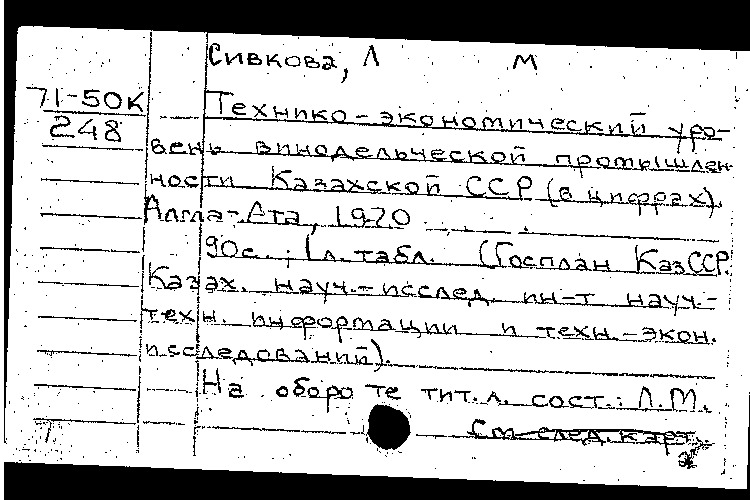 Сивкова, Л М
71-50К
248
Технико-экономический уро-
вень винодельческой промышлен-
ности Казахской ССР (в цифрах).
Алма-Ата, 1970.
90с., 1 л. табл. (Госплан КазССР.
Казах. науч.-исслед. ин-т науч.-
техн. информации и техн.-экон.
исследований).
На обороте тит. л. сост.: Л.М.
См след. карт.